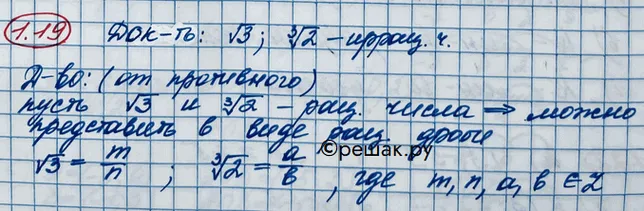 1.19 Док-ть: √3; ∛2 - иррац. ч.
Д-во: (от противного)
пусть √3 и ∛2 - рац. числа ⇒ можно
представить в виде рац. дроби
©решак.ру
√3 = m/n ; ∛2 = a/b , где m, n, a, b ∈ Z